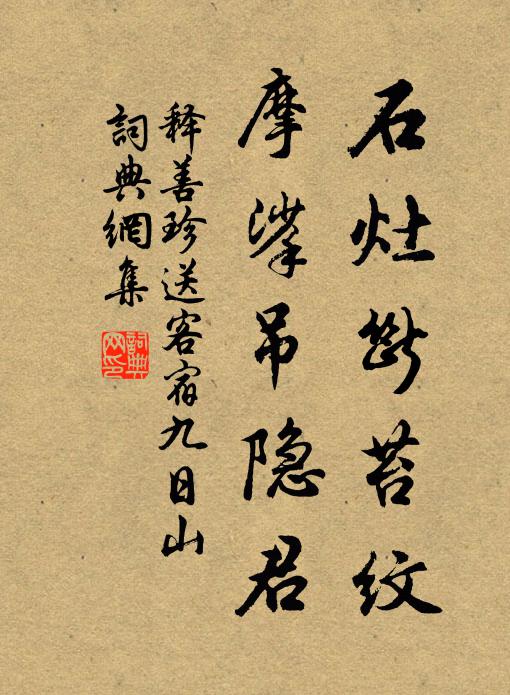 石灶断苔纹
摩挲吊隐君
释善珍送客宿九日山
詞典網集
詞典
网印